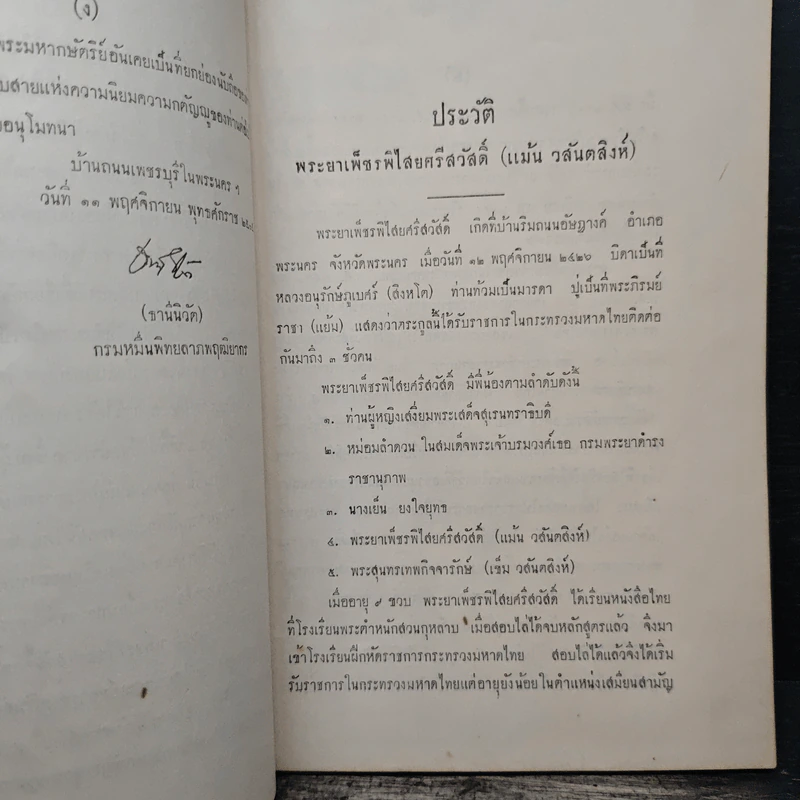 (ง)
พระมหากษัตริย์อันเคยเป็นที่ยกย่องนับถือ
สายแห่งความนิยมความกตัญญูของท่าน
อนุโมทนา
บ้านถนนเพชรบุรีในพระนคร ฯ
วันที่ ๑๑ พฤศจิกายน พุทธศักราช
(ธานีนิวัต)
กรมหมื่นพิทยลาภพฤฒิยากร
ประวัติ
พระยาเพ็ชรพิไสยศรีสวัสดิ์ (แม้น วสันตสิงห์)
พระยาเพ็ชรพิไสยศรีสวัสดิ์ เกิดที่บ้านริมถนนอัษฎางค์ อำเภอ
พระนคร จังหวัดพระนคร เมื่อวันที่ ๑๒ พฤศจิกายน ๒๔๒๖ บิดาเป็นที่
หลวงอนุรักษ์ภูเบศร์ (สิงหโต) ท่านท้วมเป็นมารดา ปู่เป็นที่พระภิรมย์
ราชา (แย้ม) แสดงว่าตระกูลนี้ได้รับราชการในกระทรวงมหาดไทยติดต่อ
กันมาถึง ๓ ชั่วคน
พระยาเพ็ชรพิไสยศรีสวัสดิ์ มีพี่น้องตามลำดับดังนี้
๑. ท่านผู้หญิงเสงี่ยมพระเสด็จสุเรนทราธิบดี
๒. หม่อมลำดวน ในสมเด็จพระเจ้าบรมวงศ์เธอ กรมพระยาดำรง
ราชานุภาพ
๓. นางเย็น ยงใจยุทธ
๔. พระยาเพ็ชรพิไสยศรีสวัสดิ์ (แม้น วสันตสิงห์)
๕. พระสุนทรเทพกิจจารักษ์ (เข็ม วสันตสิงห์)
เมื่ออายุ ๙ ขวบ พระยาเพ็ชรพิไสยศรีสวัสดิ์ ได้เรียนหนังสือไทย
ที่โรงเรียนพระตำหนักสวนกุหลาบ เมื่อสอบไล่ได้จบหลักสูตรแล้ว จึงมา
เข้าโรงเรียนฝึกหัดราชการกระทรวงมหาดไทย สอบไล่ได้แล้วจึงได้เริ่ม
รับราชการในกระทรวงมหาดไทยแต่อายุยังน้อยในตำแหน่งเสมียนสามัญ